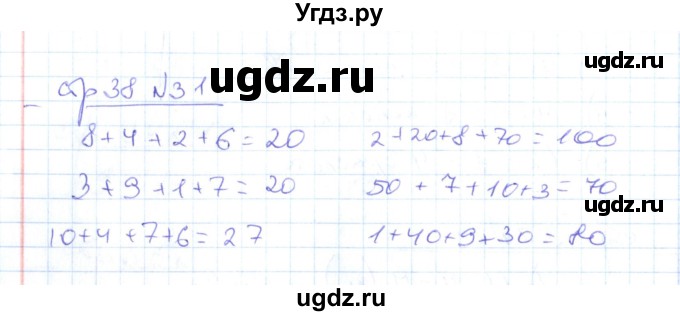 Угдз.ру
ugdz.ru
стр 38 №31
ugdz.ru
8+4+2+6=20
2+20+8+70=100
3+9+1+7=20
50+7+10+3=70
ugdz.ru
10+4+7+6=27
1+40+9+30=80
ugdz.ru
ugdz.ru